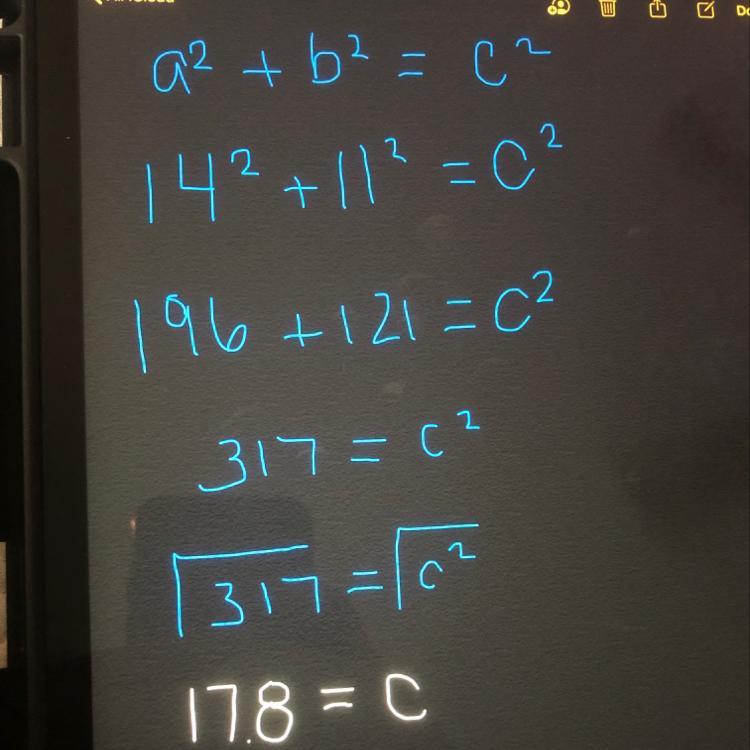 a² + b² = c²
14² + 11² = c²
196 + 121 = c²
317 = c²
√317 = √c²
17.8 = c